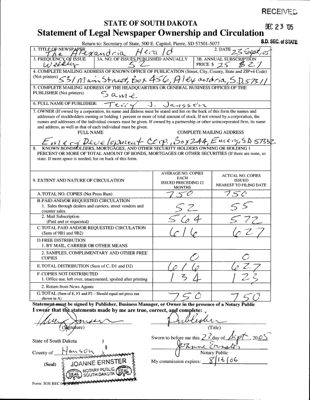 RECEIVED
DEC 23 '05
S.D. SEC. of STATE
STATE OF SOUTH DAKOTA
Statement of Legal Newspaper Ownership and Circulation
Return to: Secretary of State, 500 E. Capitol, Pierre, SD 57501-5077
1. TITLE OF NEWSPAPER
The Alexandria Herald
2. DATE
23 Sept 05
3. FREQUENCY OF ISSUE
Weekly
3A. NO. OF ISSUES PUBLISHED ANNUALLY
52
3B. ANNUAL SUBSCRIPTION
PRICE $ 25 $21
4. COMPLETE MAILING ADDRESS OF KNOWN OFFICE OF PUBLICATION (Street, City, County, State and ZIP+4 Code)
(Not printers) 531 Main Street, Box 456, Alexandria, SD 57311
5. COMPLETE MAILING ADDRESS OF THE HEADQUARTERS OR GENERAL BUSINESS OFFICES OF THE
PUBLISHER (Not printer)
Same
6. FULL NAME OF PUBLISHER:
Terry J. Jenssen
7. OWNER (If owned by a corporation, its name and address must be stated and list on the back of this form the names and
addresses of stockholders owning or holding 1 percent or more of total amount of stock. If not owned by a corporation, the
names and addresses of the individual owners must be given. If owned by a partnership or other unincorporated firm, its name
and address, as well as that of each individual must be given.
FULL NAME
COMPLETE MAILING ADDRESS
Emery Development Corp, Box 244, Emery, SD 57332
8. KNOWN BONDHOLDERS, MORTGAGES, AND OTHER SECURITY HOLDERS OWNING OR HOLDING 1
PERCENT OR MORE OF TOTAL AMOUNT OF BONDS, MORTGAGES OR OTHER SECURITIES (If there are none, so
state. If more space is needed, list on back of this form.
9. EXTENT AND NATURE OF CIRCULATION
AVERAGE NO. COPIES
EACH
ISSUED PRECEDING 12
MONTHS
ACTUAL NO. COPIES
ISSUED
NEAREST TO FILING DATE
A. TOTAL NO. COPIES (Net Press Run)
750
750
B. PAID AND/OR REQUESTED CIRCULATION
1. Sales through dealers and carriers, street vendors and
counter sales.
52
55
2. Mail Subscription
(Paid and or requested)
564
572
C. TOTAL PAID AND/OR REQUESTED CIRCULATION
(Sum of 9B1 and 9B2)
616
627
D. FREE DISTRIBUTION
1. BY MAIL, CARRIER OR OTHER MEANS
2. SAMPLES, COMPLIMENTARY AND OTHER FREE
COPIES
0
0
E. TOTAL DISTRIBUTION (Sum of C, D1 and D2)
616
627
F. COPIES NOT DISTRIBUTED
1. Office use, left over, unaccounted, spoiled after printing
134
123
2. Return from News Agents
G. TOTAL (Sum of E, F1 and F2 - Should equal net press run
shown in A)
750
750
Statement must be signed by Publisher, Business Manager, or Owner in the presence of a Notary Public
I swear that the statements made by me are true, correct, and complete:
Publisher
(Signature)
(Title)
State of South Dakota
Sworn to before me this 23 day of Sept. 2005
County of Hanson
Jeanne Ernster
Notary Public
My commission expires: 8/16/06
(Seal)
JEANNE ERNSTER
NOTARY PUBLIC
SOUTH DAKOTA
SEAL